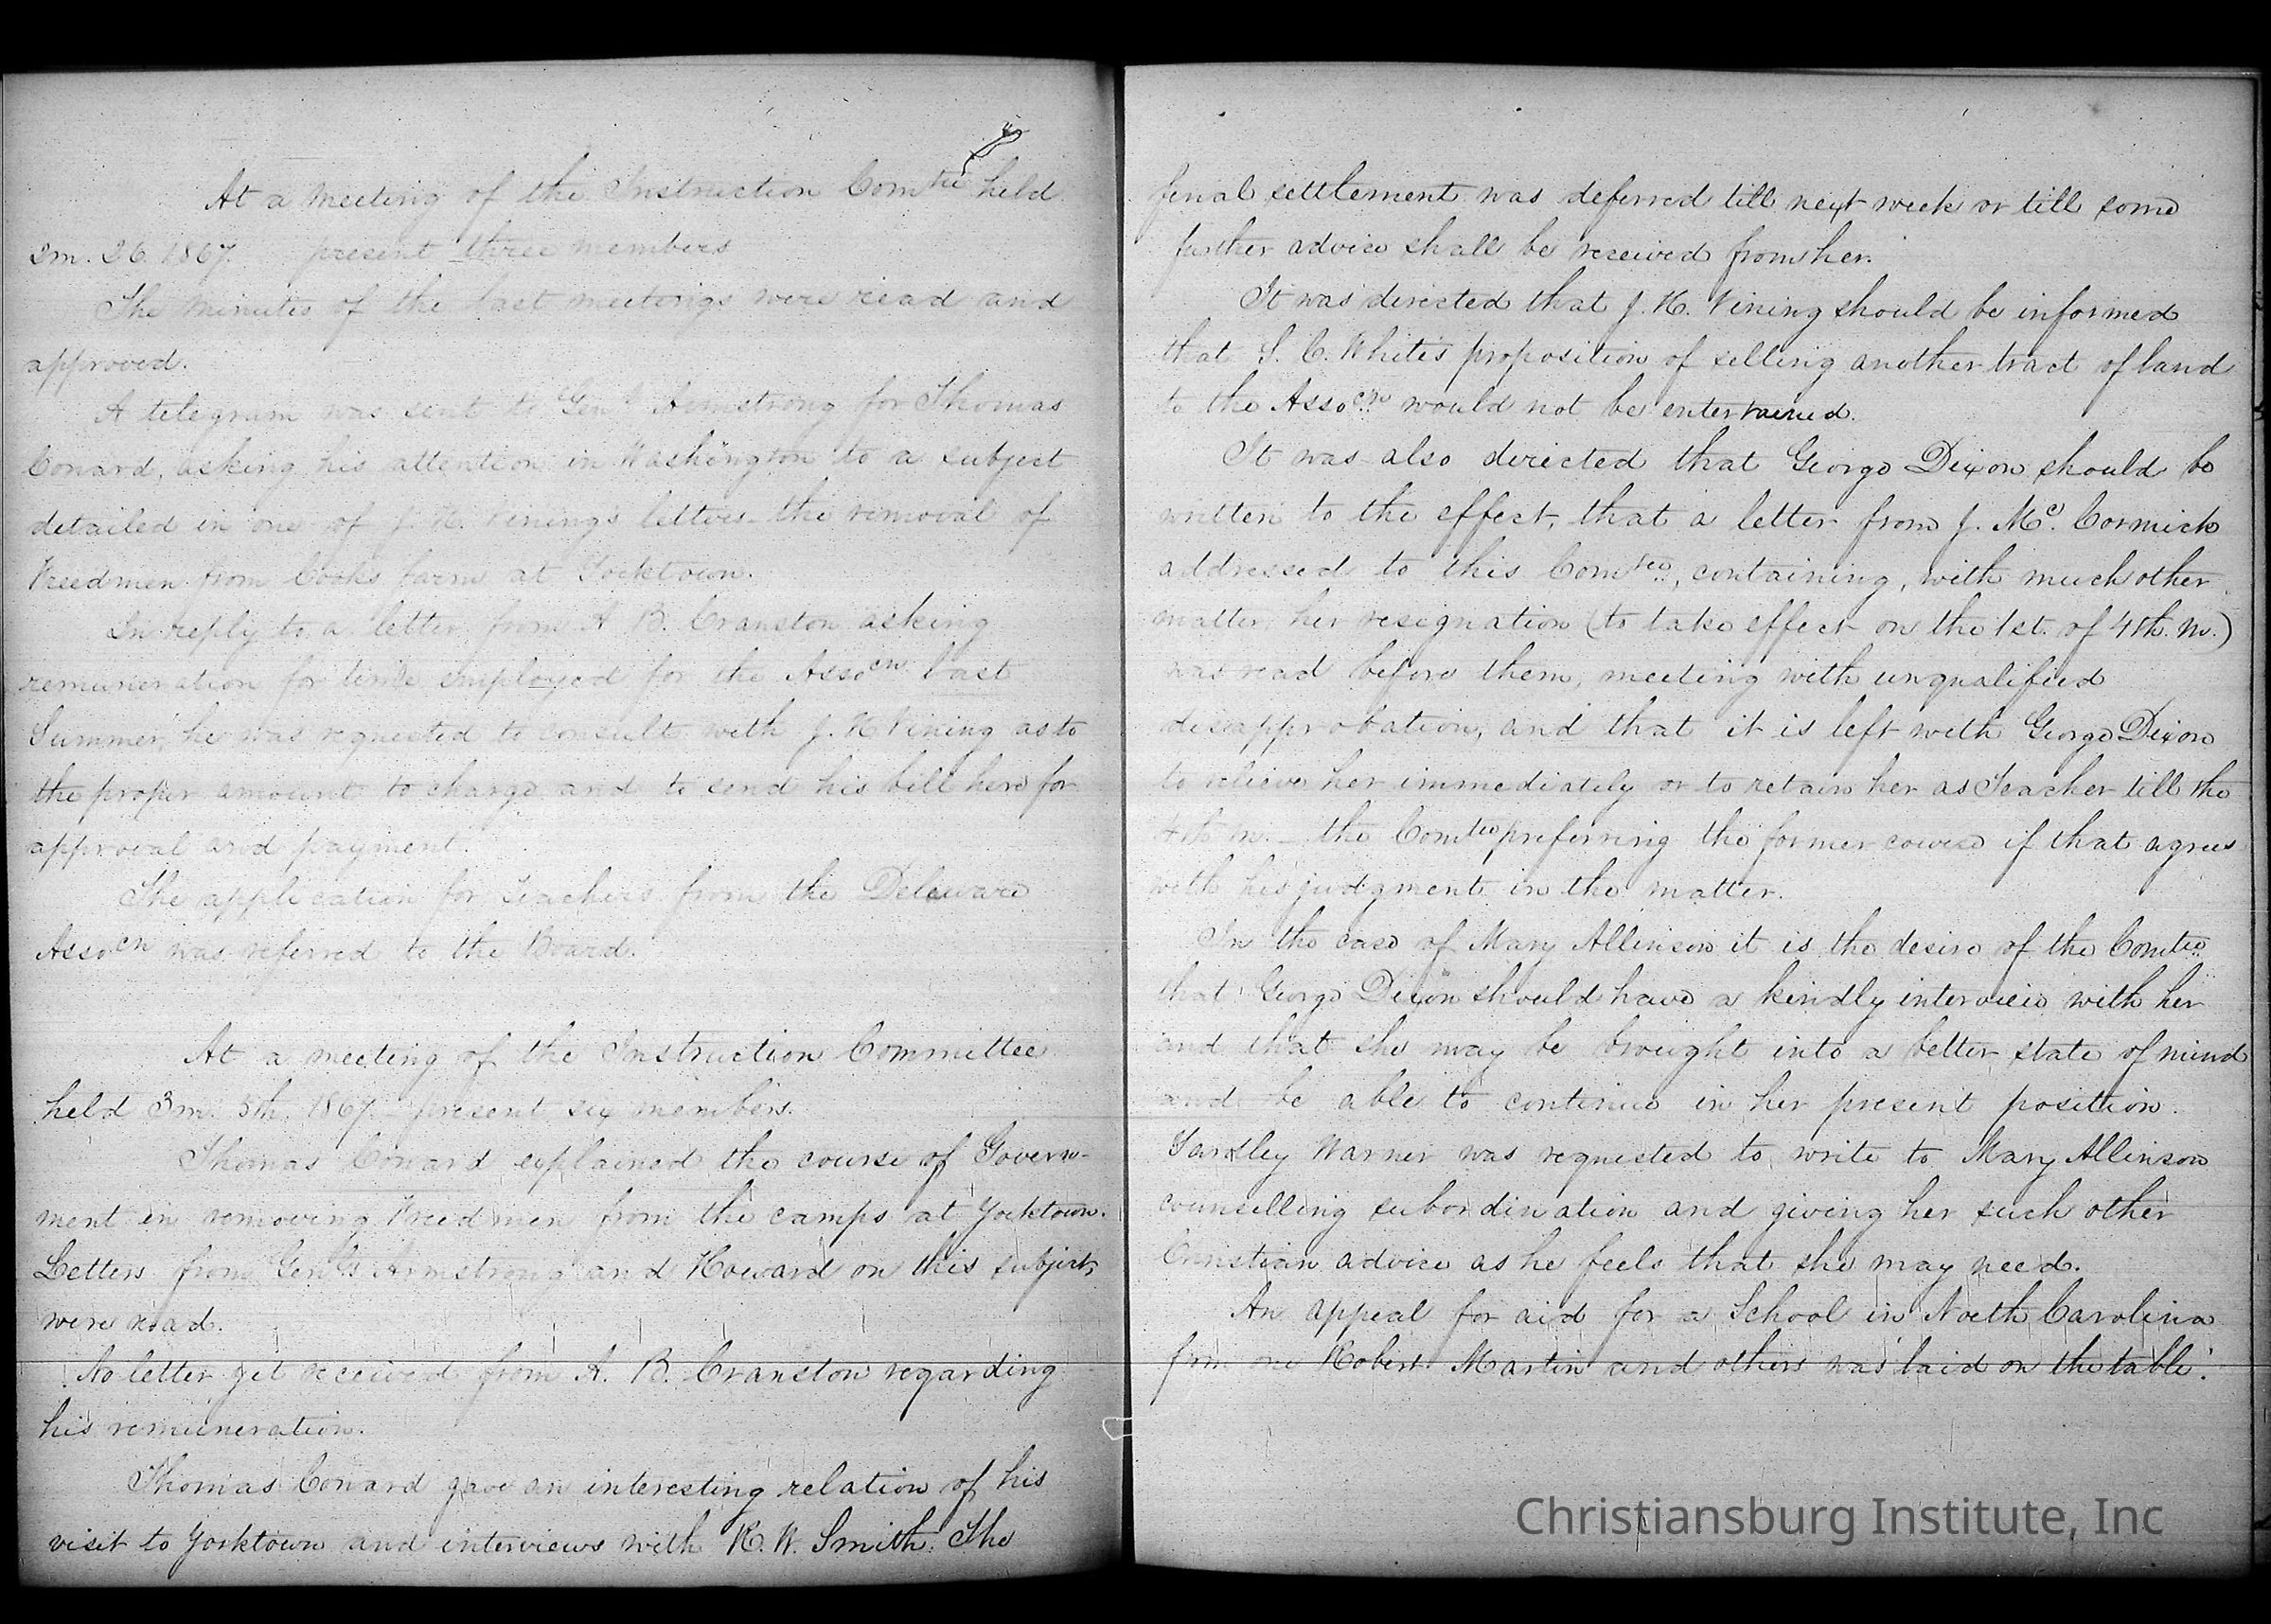 At a meeting of the Instruction Comtee held
2m. 26. 1867. present three members
The minutes of the last meetings were read and
approved.
A telegram was sent to Genl Armstrong for Thomas
Conard, asking his attention in Washington to a subject
detailed in one of J. H. Vining's letters - the removal of
Freedmen from Cooks farm at Yorktown.
In reply to a letter from A B. Cranston asking
remuneration for time employed for the Assocn last
Summer, he was requested to consult with J. H Vining as to
the proper amount to charge and to send his bill here for
approval and payment.
The application for teachers from the Delaware
Assocn was referred to the Board.
At a meeting of the Instruction Committee
held 3m. 5th. 1867. - present six members.
Thomas Conard explained the course of Govern-
ment in removing Freedmen from the camps at Yorktown.
Letters from Genls Armstrong and Howard on this subject,
were read.
No letter yet received from A. B. Cranston regarding
his remuneration.
Thomas Conard gave an interesting relation of his
visit to Yorktown and interviews with R. W. Smith. The
final settlement was deferred till next week or till some
further advice shall be received from her.
It was directed that J. H. Vining should be informed
that S. C. White's proposition of selling another tract of land
to the Assocn. would not be entertained.
It was also directed that George Dixon should be
written to the effect, that a letter from J. Mc. Cormick
addressed to this Comtee., containing, with much other
matter her resignation (to take effect on the 1st. of 4th. m.)
was read before them, meeting with unqualified
disapprobation, and that it is left with George Dixon
to relieve her immediately or to retain her as Teacher till the
4th m. - the Comtee preferring the former course if that agrees
with his judgment in the matter.
In the case of Mary Allinson it is the desire of the Comtee.
that George Dixon should have a kindly interview with her
and that she may be brought into a better state of mind
and be able to continue in her present position.
Yardley Warner was requested to write to Mary Allinson
counselling subordination and giving her such other
Christian advice as he feels that she may need.
An appeal for aid for a School in North Carolina
from one Robert Martin and others was laid on the table.
Christiansburg Institute, Inc